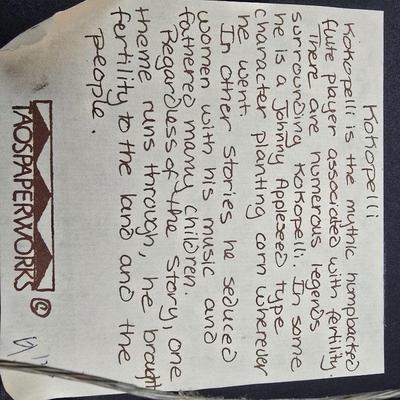 Kokopelli
Kokopelli is the mythic humpbacked
flute player associated with fertility.
There are numerous legends
surrounding Kokopelli. In some
he is a Johnny Appleseed type
character planting corn wherever
he went.
In other stories he seduced
women with his music and
fathered many children.
Regardless of the story, one
theme runs through, he brought
fertility to the land and the
people.
TAOSPAPERWORKS ©